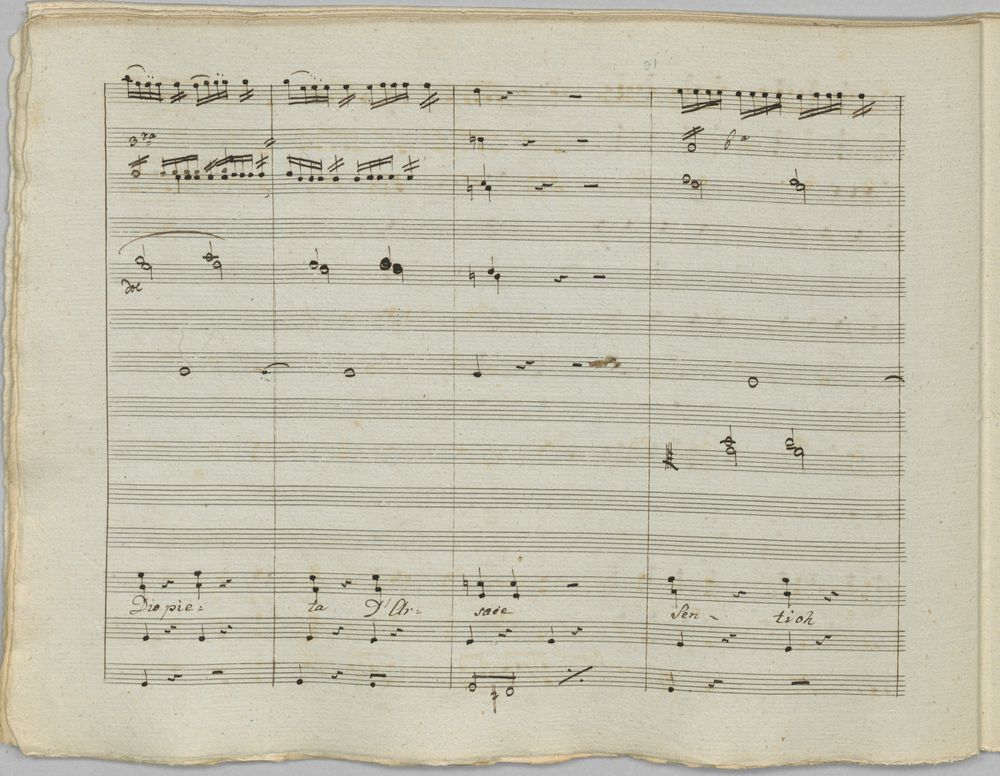 31
dol
Dio pie= ta D'Ar= sace Sen- ti oh